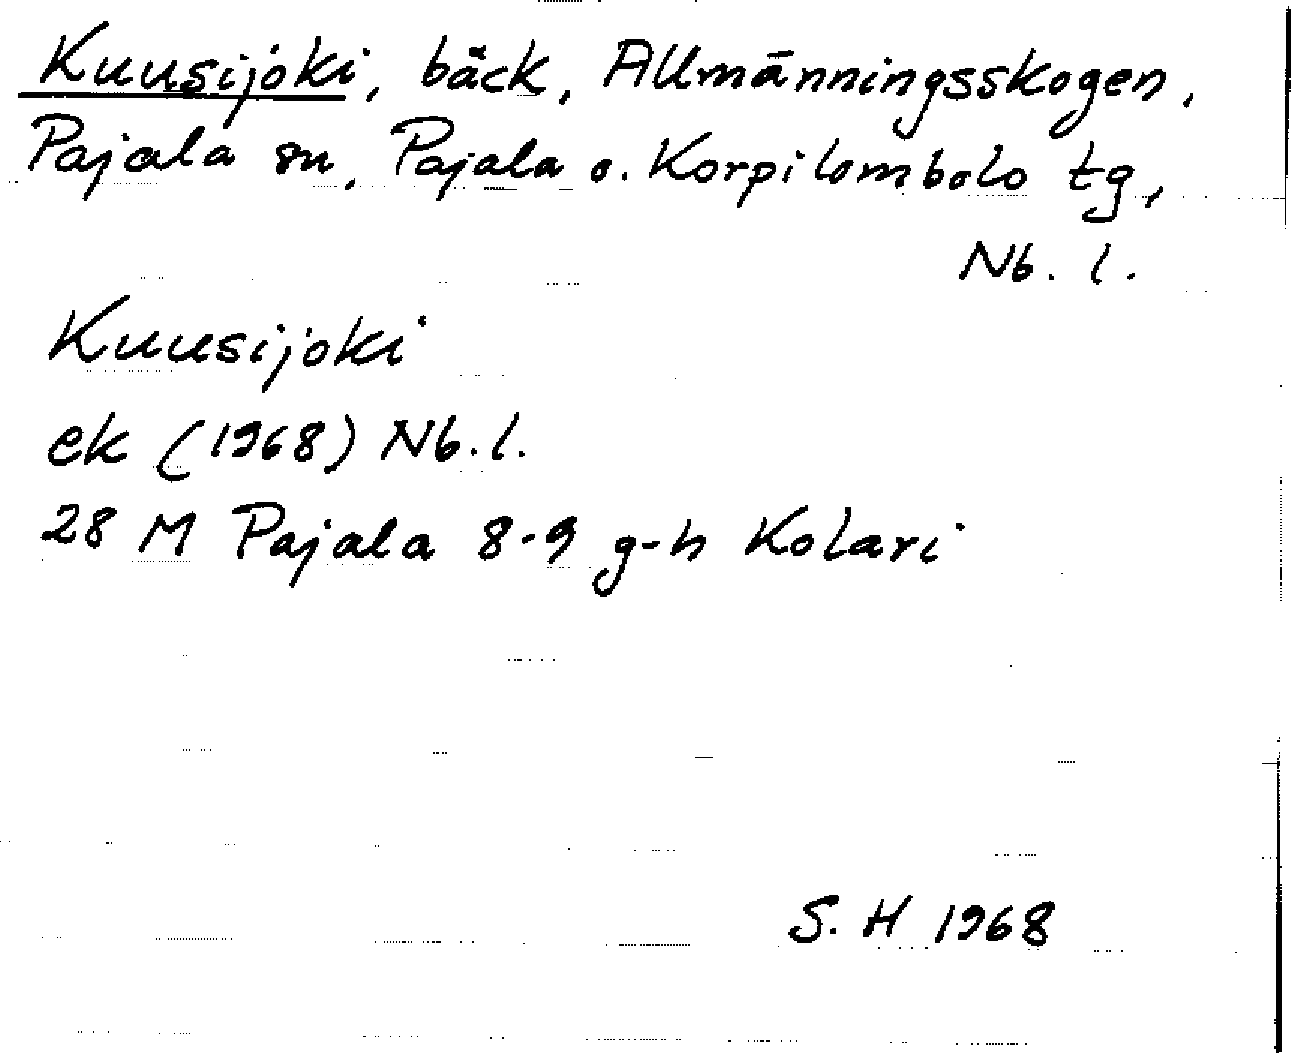 Kuusijoki, bäck, Allmänningsskogen,
Pajala sn, Pajala o. Korpilombolo tg,
Nb. l.
Kuusijoki
ek (1968) Nb. l.
28 M Pajala 8-9 g-h Kolari
S. H 1968